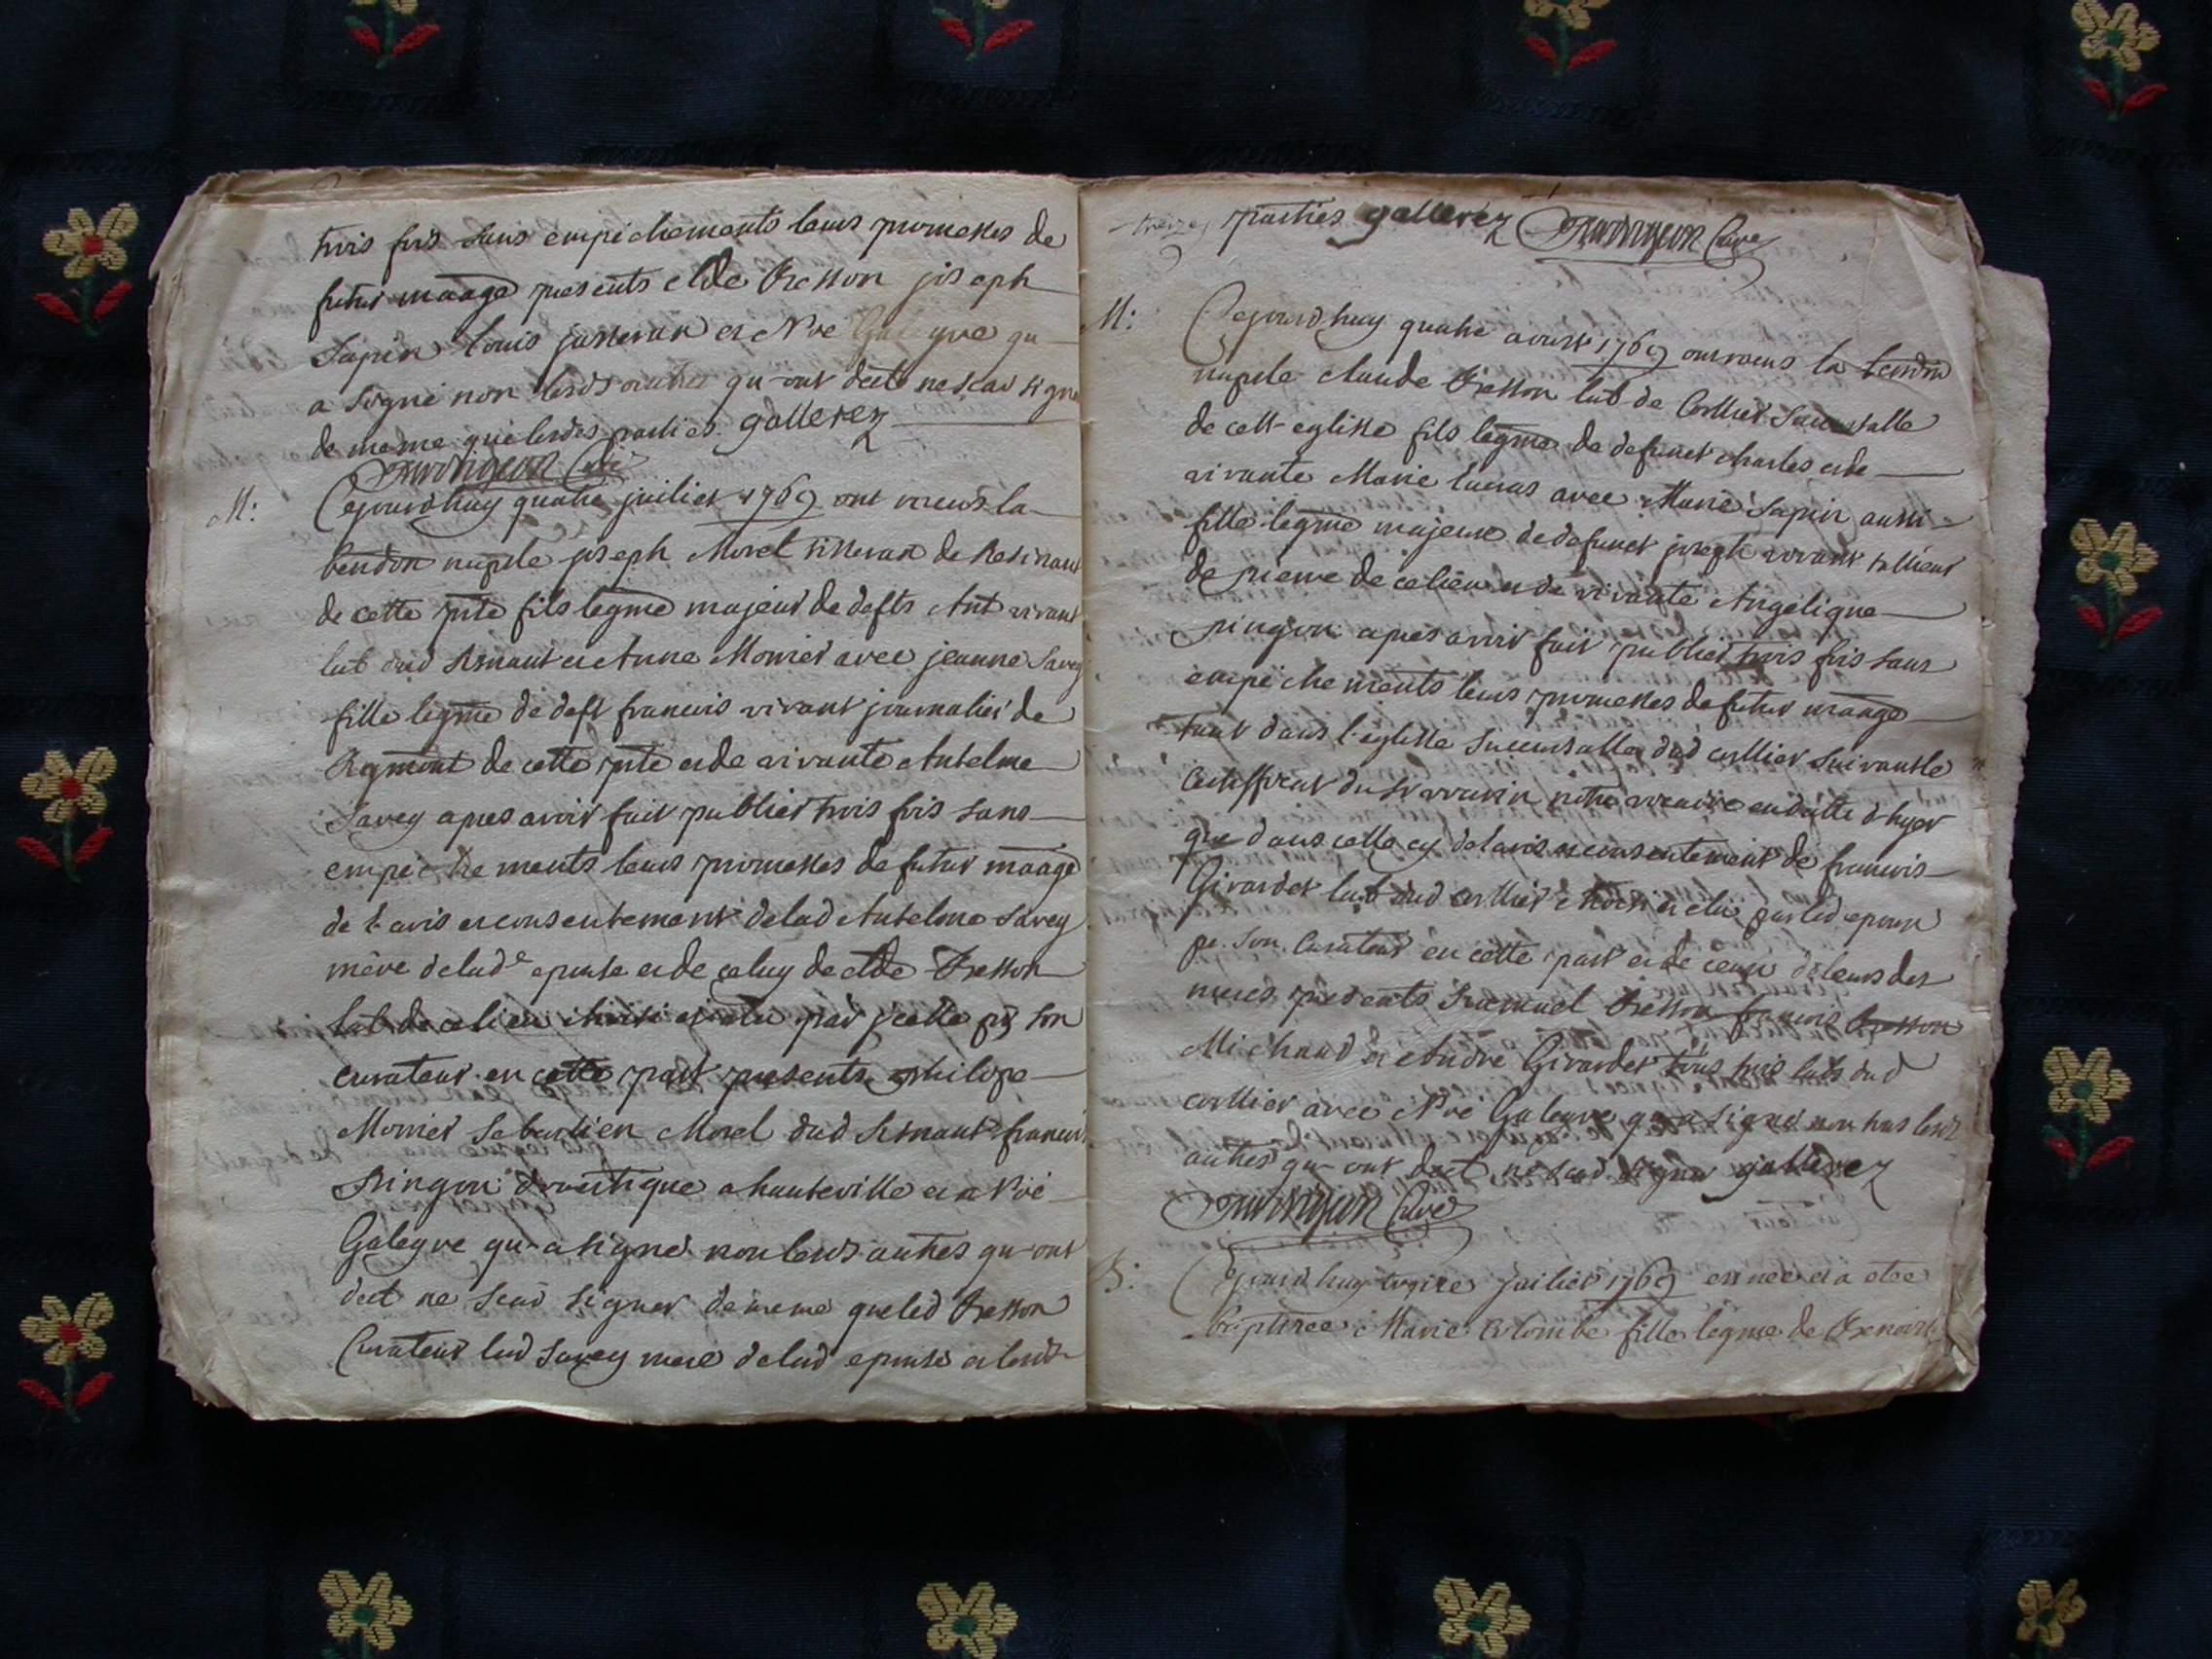 trois fois sans empechements leurs promesses de
futur maage presents Clde Fresson joseph
Sapin louis et Noe qu
a signé non lesds autres qu ont declt ne scav signe
de meme que lesdes parties. gallerez
Curé
M: Cejourdhuy quatre juilier 1769 ont receus la
bendon nuple joseph Morel de
de cette pste fils legme majeur de defts Ant vivant
lab dud et Anne Monier avec jeanne Savey
fille legme de deft francois vivant journalier de
de cette pste et de vivante Antelme
Savey apres avoir fait publier trois fois sans
empechements leurs promesses de futur maage
de l avis et consentement de lad Antelme Savey
mère de lade epouse et de celuy de Clde Fresson
lab de ce lieu choisi et elu par jcelle pr son
curateur en cette part presents philipe
Monier Sebastien Morel dud francois
Pingon domestique a hauteville et a Noé
Galeyre qu a signé non lesds autres qu ont
declt ne scav signer de meme que led Fresson
Curateur lad Savey mere de lad epouse et lesds
parties gallerez Curé
M: Cejourdhuy quatre aoust 1769 ont receus la bendon
nuple claude Fresson lab de Corllier Succursalle
de cett eglisse fils legme de defunct charles et de
vivante Marie lucras avec Marie Sapin aussi
fille legme majeure de defunct joseph vivant tallieur
de pierre de ce lieu et de vivante Angelique
pingon apres avoir fait publier trois fois sans
empechements leurs promesses de futur maage
tant dans l eglisse succursalle dud corllier suivant le
certifficat du Sr notre vicaire en datte d hyer
que dans celle cy de l avis et consentement de francois
Girardet lab dud corllier choisi et elu par led epoux
pr son Curateur en cette part et de ceux de leurs des
meres presents Fresson francois
Michaud et Andre Girardet tous trois labs dud
corllier avec Noe Galeyre qu a signé non pas lesds
autres qu ont declt ne scav signer gallerez
Curé
B: Cejourdhuy juilier 1769 est née et a etee
baptisee Marie Colombe fille legme de